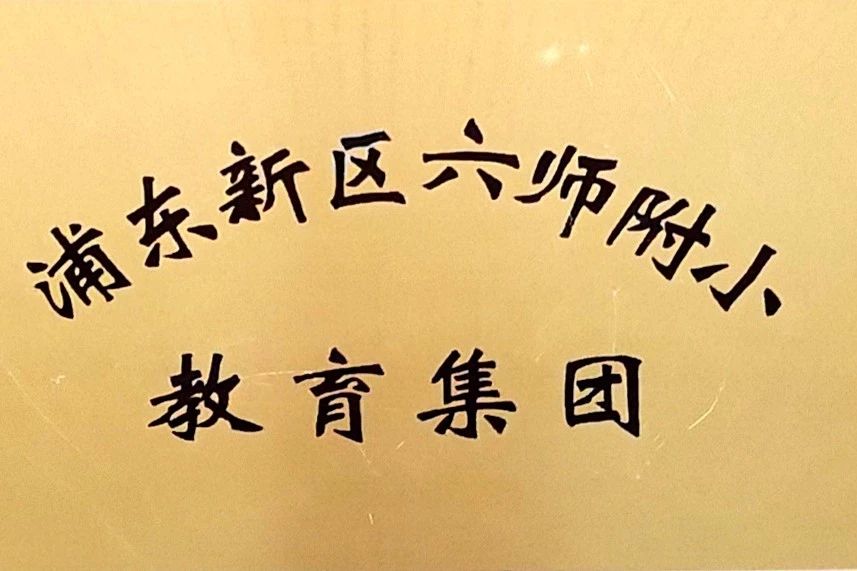 浦东新区六师附小
教育集团